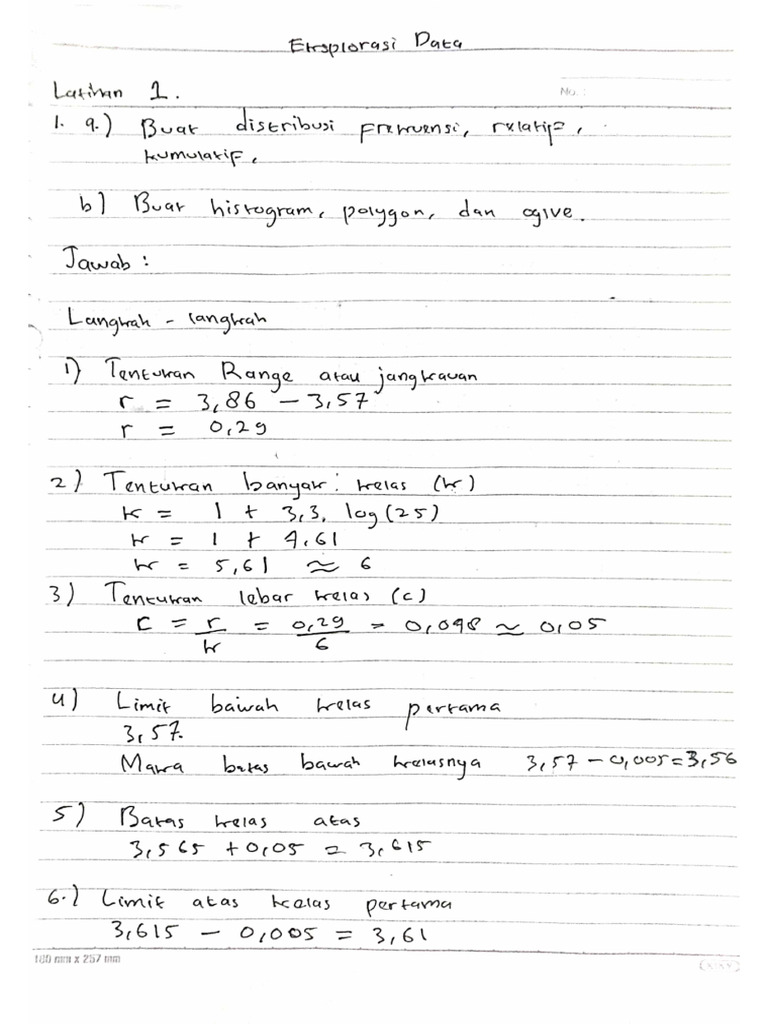 Eksplorasi Data
No. :
Latihan 1.
1. a.) Buat distribusi frekuensi, relatif,
kumulatif,
b) Buat histogram, polygon, dan ogive.
Jawab :
Langkah - langkah
1) Tentukan Range atau jangkauan
r = 3,86 - 3,57
r = 0,29
2) Tentukan banyak kelas (k)
k = 1 + 3,3. log(25)
k = 1 + 4,61
k = 5,61 ≈ 6
3) Tentukan lebar kelas (c)
c = r/k = 0,29/6 = 0,048 ≈ 0,05
4) Limit bawah kelas pertama
3,57.
Maka batas bawah kelasnya 3,57 - 0,005 = 3,56
5) Batas kelas atas
3,565 + 0,05 = 3,615
6.) Limit atas kelas pertama
3,615 - 0,005 = 3,61
180 mm x 257 mm